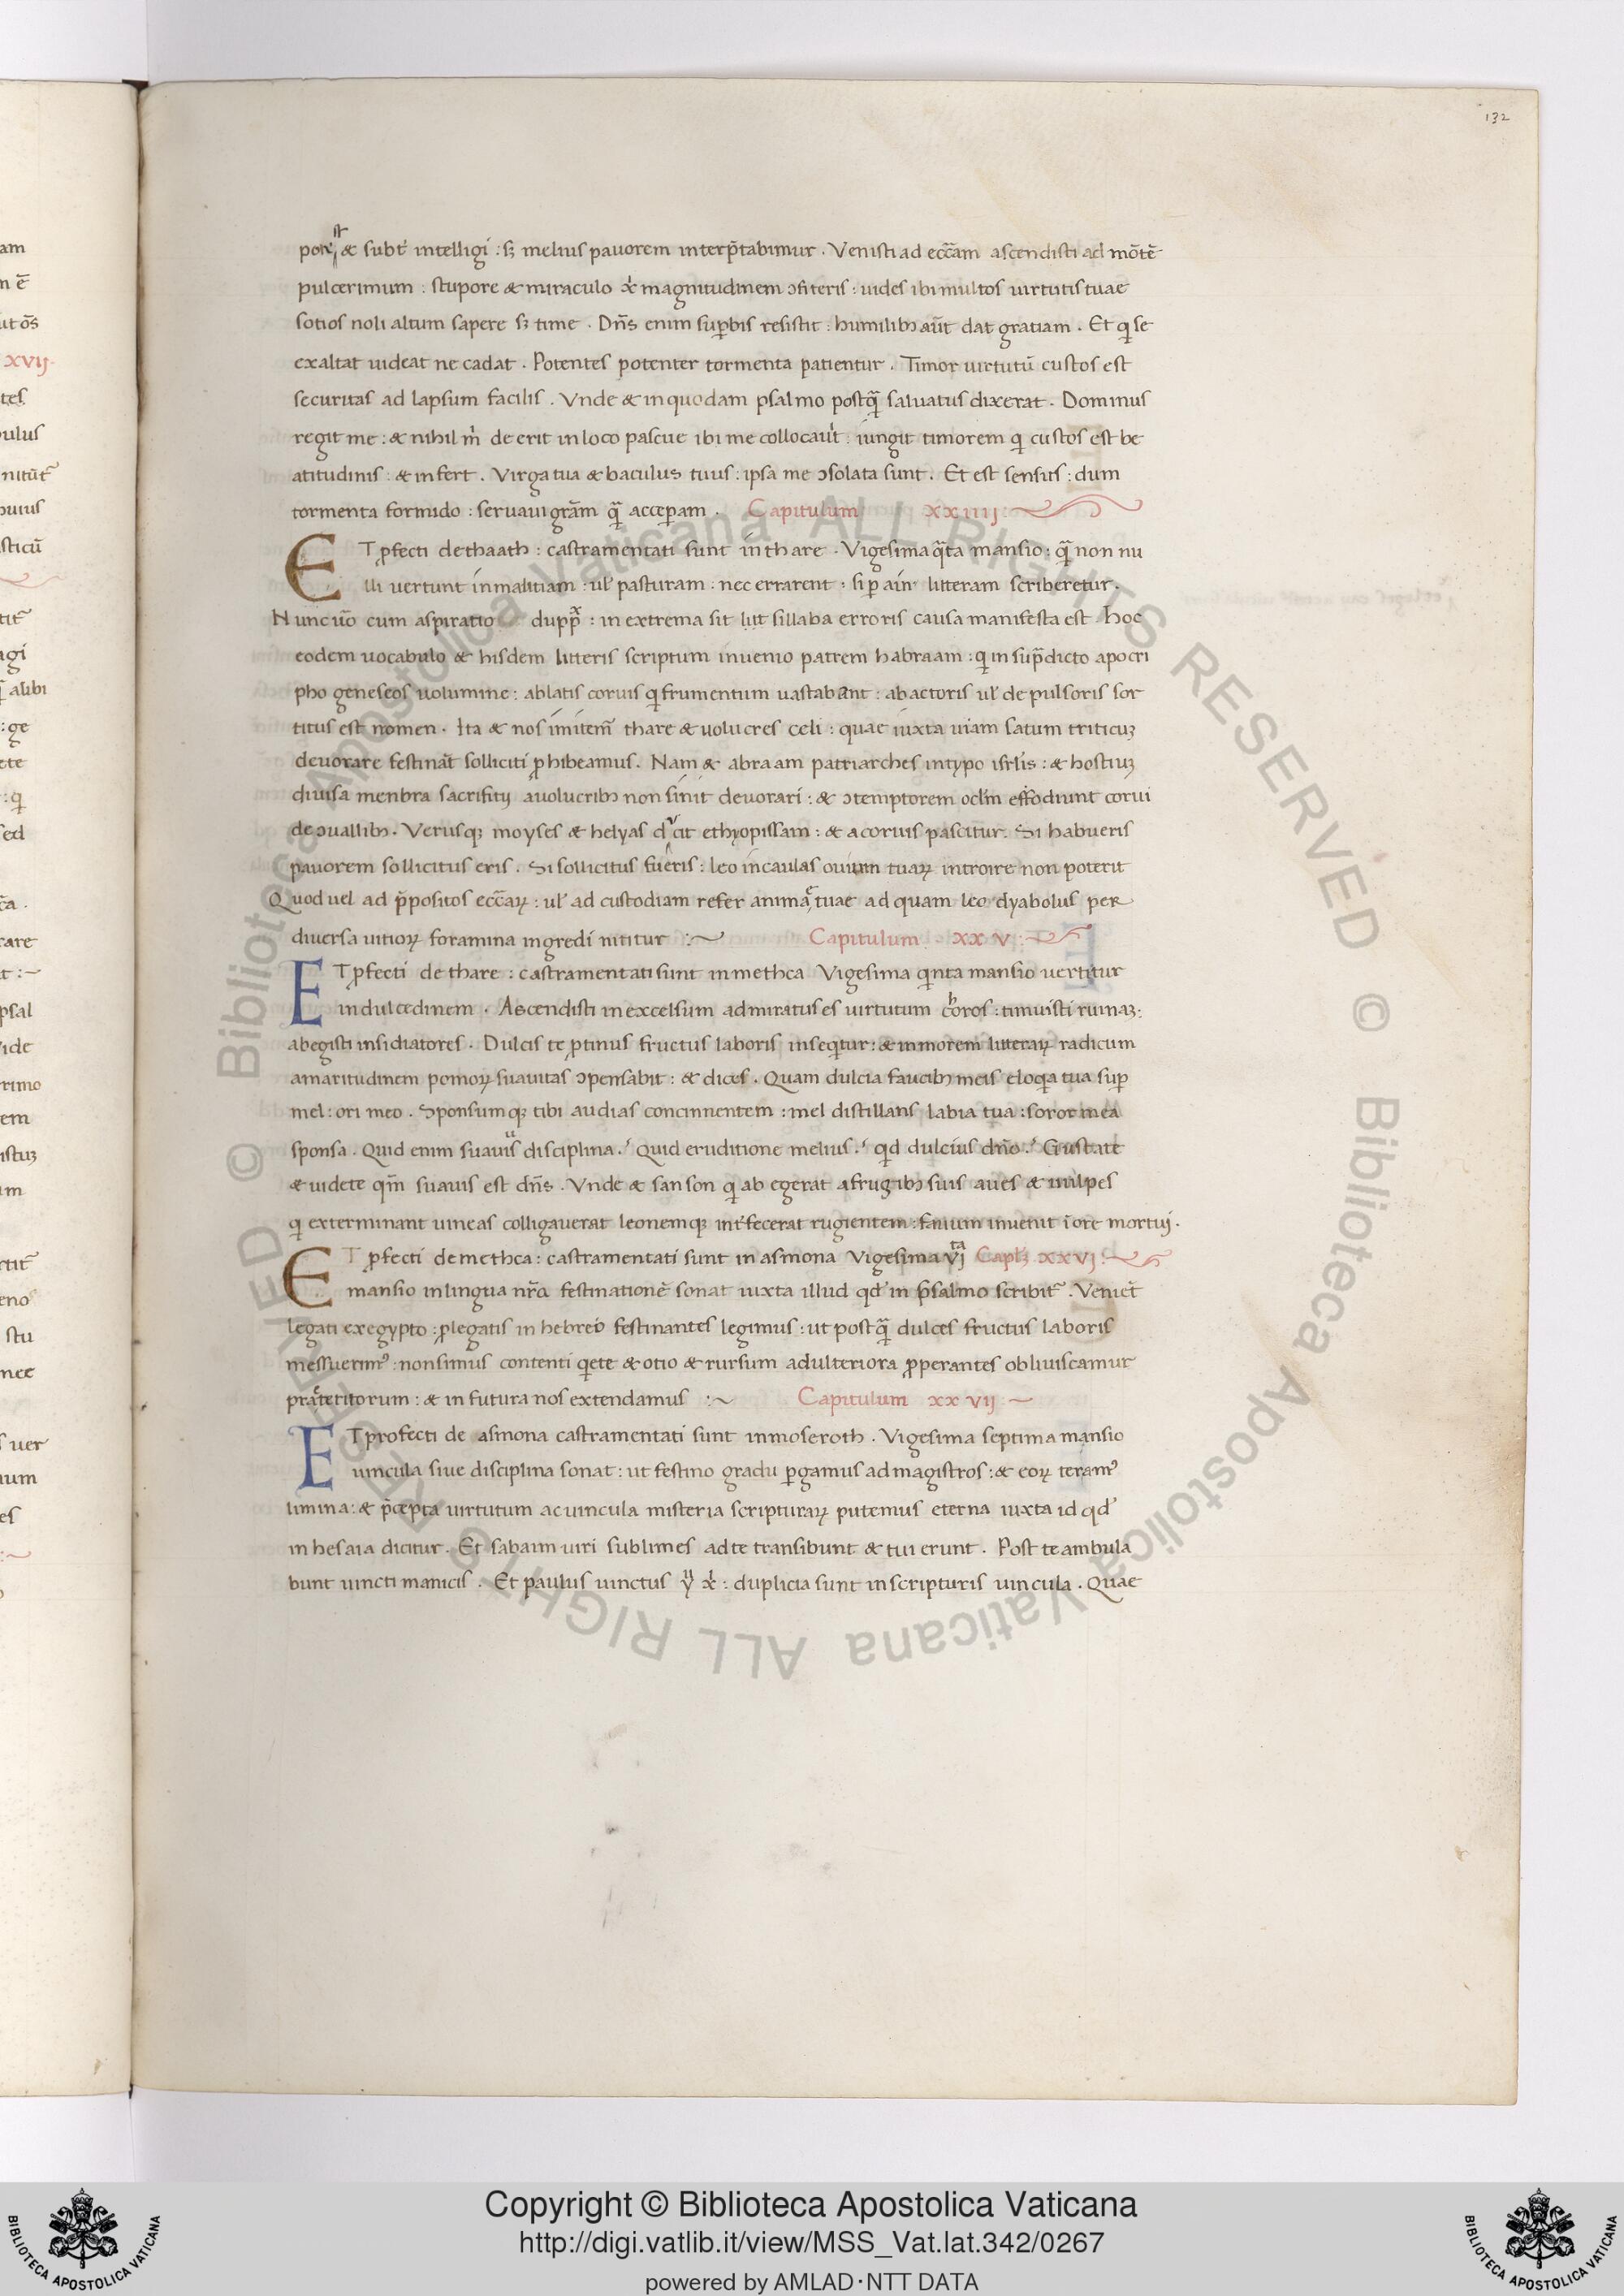 132
potest & subt̃ intelligi : sꝫ melius pauorem interp̃tabimur . Venisti ad eccl̃am ascendisti ad mõtẽ
pulcerimum : stupore & miraculo xp̃i magnitudinem ↄfiteris : uides ibi multos uirtutis tuae
sotios noli altum sapere sꝫ time . Dñs enim suꝑbis resistit : humilibꝫ aũt dat gratiam . Et q̣ se
exaltat uideat ne cadat . Potentes potenter tormenta patientur . Timor uirtutũ custos est
securitas ad lapsum facilis . Vnde & in quodam psalmo postq̃ saluatus dixerat . Dominus
regit me : & nihil m̃ de erit in loco pascue ibi me collocauĩt . iungit timorem qi custos est be
atitudinis : & infert . Virga tua & baculus tuus : ipsa me ↄsolata sunt . Et est sensus : dum
tormenta formido : seruaui grãm q̃ acceꝑam . Capitulum xxiiii :~
ET ꝓfecti de thaath : castramentati sunt in thare . Vigesima q̃ta mansio : q̃ non nu
lli uertunt in malitiam : ul̃ pasturam . nec errarent : si ꝑ ain litteram scriberetur .
Nunc uõ cum aspiratio duppx̃ : in extrema sit litt sillaba erroris causa manifesta est . hoc
eodem uocabulo & hisdem litteris scriptum inuenio patrem habraam : qi in sup̃dicto apocri
pho geneseos uolumine : ablatis coruis qi frumentum uastabant : abactoris ul̃ depulsoris sor
titus est nomen . Ita & nos imitem̃ thare & uolucres celi : quae iuxta uiam satum triticuꝫ
deuorare festinãt solliciti ꝓhibeamus . Nam & abraam patriarches in typo isrl̃is : & hostiuꝫ
diuisa menbra sacrifitij a uolucribꝫ non sinit deuorari : & ↄtemptorem ocl̃m effodiunt corui
de ↄuallibꝫ . Verusqꝫ moyses & helyas ducit ethyopissam : & a coruis pascitur . Si habueris
pauorem sollicitus eris . Si sollicitus fueris : leo in caulas ouium tuaꝝ introire non poterit
Quod uel ad p̃positos eccl̃aꝝ : ul̃ ad custodiam refer animae tuae ad quam leo dyabolus per
diuersa uitioꝝ foramina ingredi nititur :~ Capitulum xxv :~
ET ꝓfecti de thare : castramentati sunt in methca Vigesima qinta mansio uertitur
in dulcedinem . Ascendisti in excelsum admiratus es uirtutum choros : timuisti ruinaꝫ :
abegisti insidiatores . Dulcis te ꝓtinus fructus laboris inseqitur : & in morem litteraꝝ radicum
amaritudinem pomoꝝ suauitas ↄpensabit : & dices . Quam dulcia faucibꝫ meis eloqia tua suꝑ
mel : ori meo . Sponsumqꝫ tibi audias concinnentem : mel distillans labia tua : soror mea
sponsa . Quid enim suauius disciplina . Quid eruditione melius . qid dulcius dño . Gustate
& uidete qm̃ suauis est dñs . Vnde & sanson qi ab egerat a frugibꝫ suis aues & uulpes
qi exterminant uineas colligauerat leonemqꝫ int̃fecerat rugientem : fauum inuenit ĩ ore mortui .
ET ꝓfecti de methca : castramentati sunt in asmona Vigesima vjta Capl̃ꝫ xxvi :~
mansio in lingua nr̃a festinationẽ sonat iuxta illud qd' in psalmo scribit̃ . Veniẽt
legati ex egypto : ꝓ legatis in hebreo festinantes legimus : ut postq̃ dulces fructus laboris
messuerimꝰ : non simus contenti qiete & otio & rursum ad ulteriora ꝓperantes obliuiscamur
praeteritorum : & in futura nos extendamus :~ Capitulum xxvij ~
ET profecti de asmona castramentati sunt in moseroth . Vigesima septima mansio
uincula siue disciplina sonat : ut festino gradu ꝑgamus ad magistros : & eoꝝ teramꝰ
limina : & p̃cepta uirtutum ac uincula misteria scripturaꝝ putemus eterna iuxta id qd'
in hesaia dicitur . Et sabaim uiri sublimes ad te transibunt & tui erunt . Post te ambula
bunt uincti manicis . Et paulus uinctus yũ xp̃i : duplicia sunt in scripturis uincula . Quae
Copyright © Biblioteca Apostolica Vaticana
http://digi.vatlib.it/view/MSS_Vat.lat.342/0267
powered by AMLAD·NTT DATA